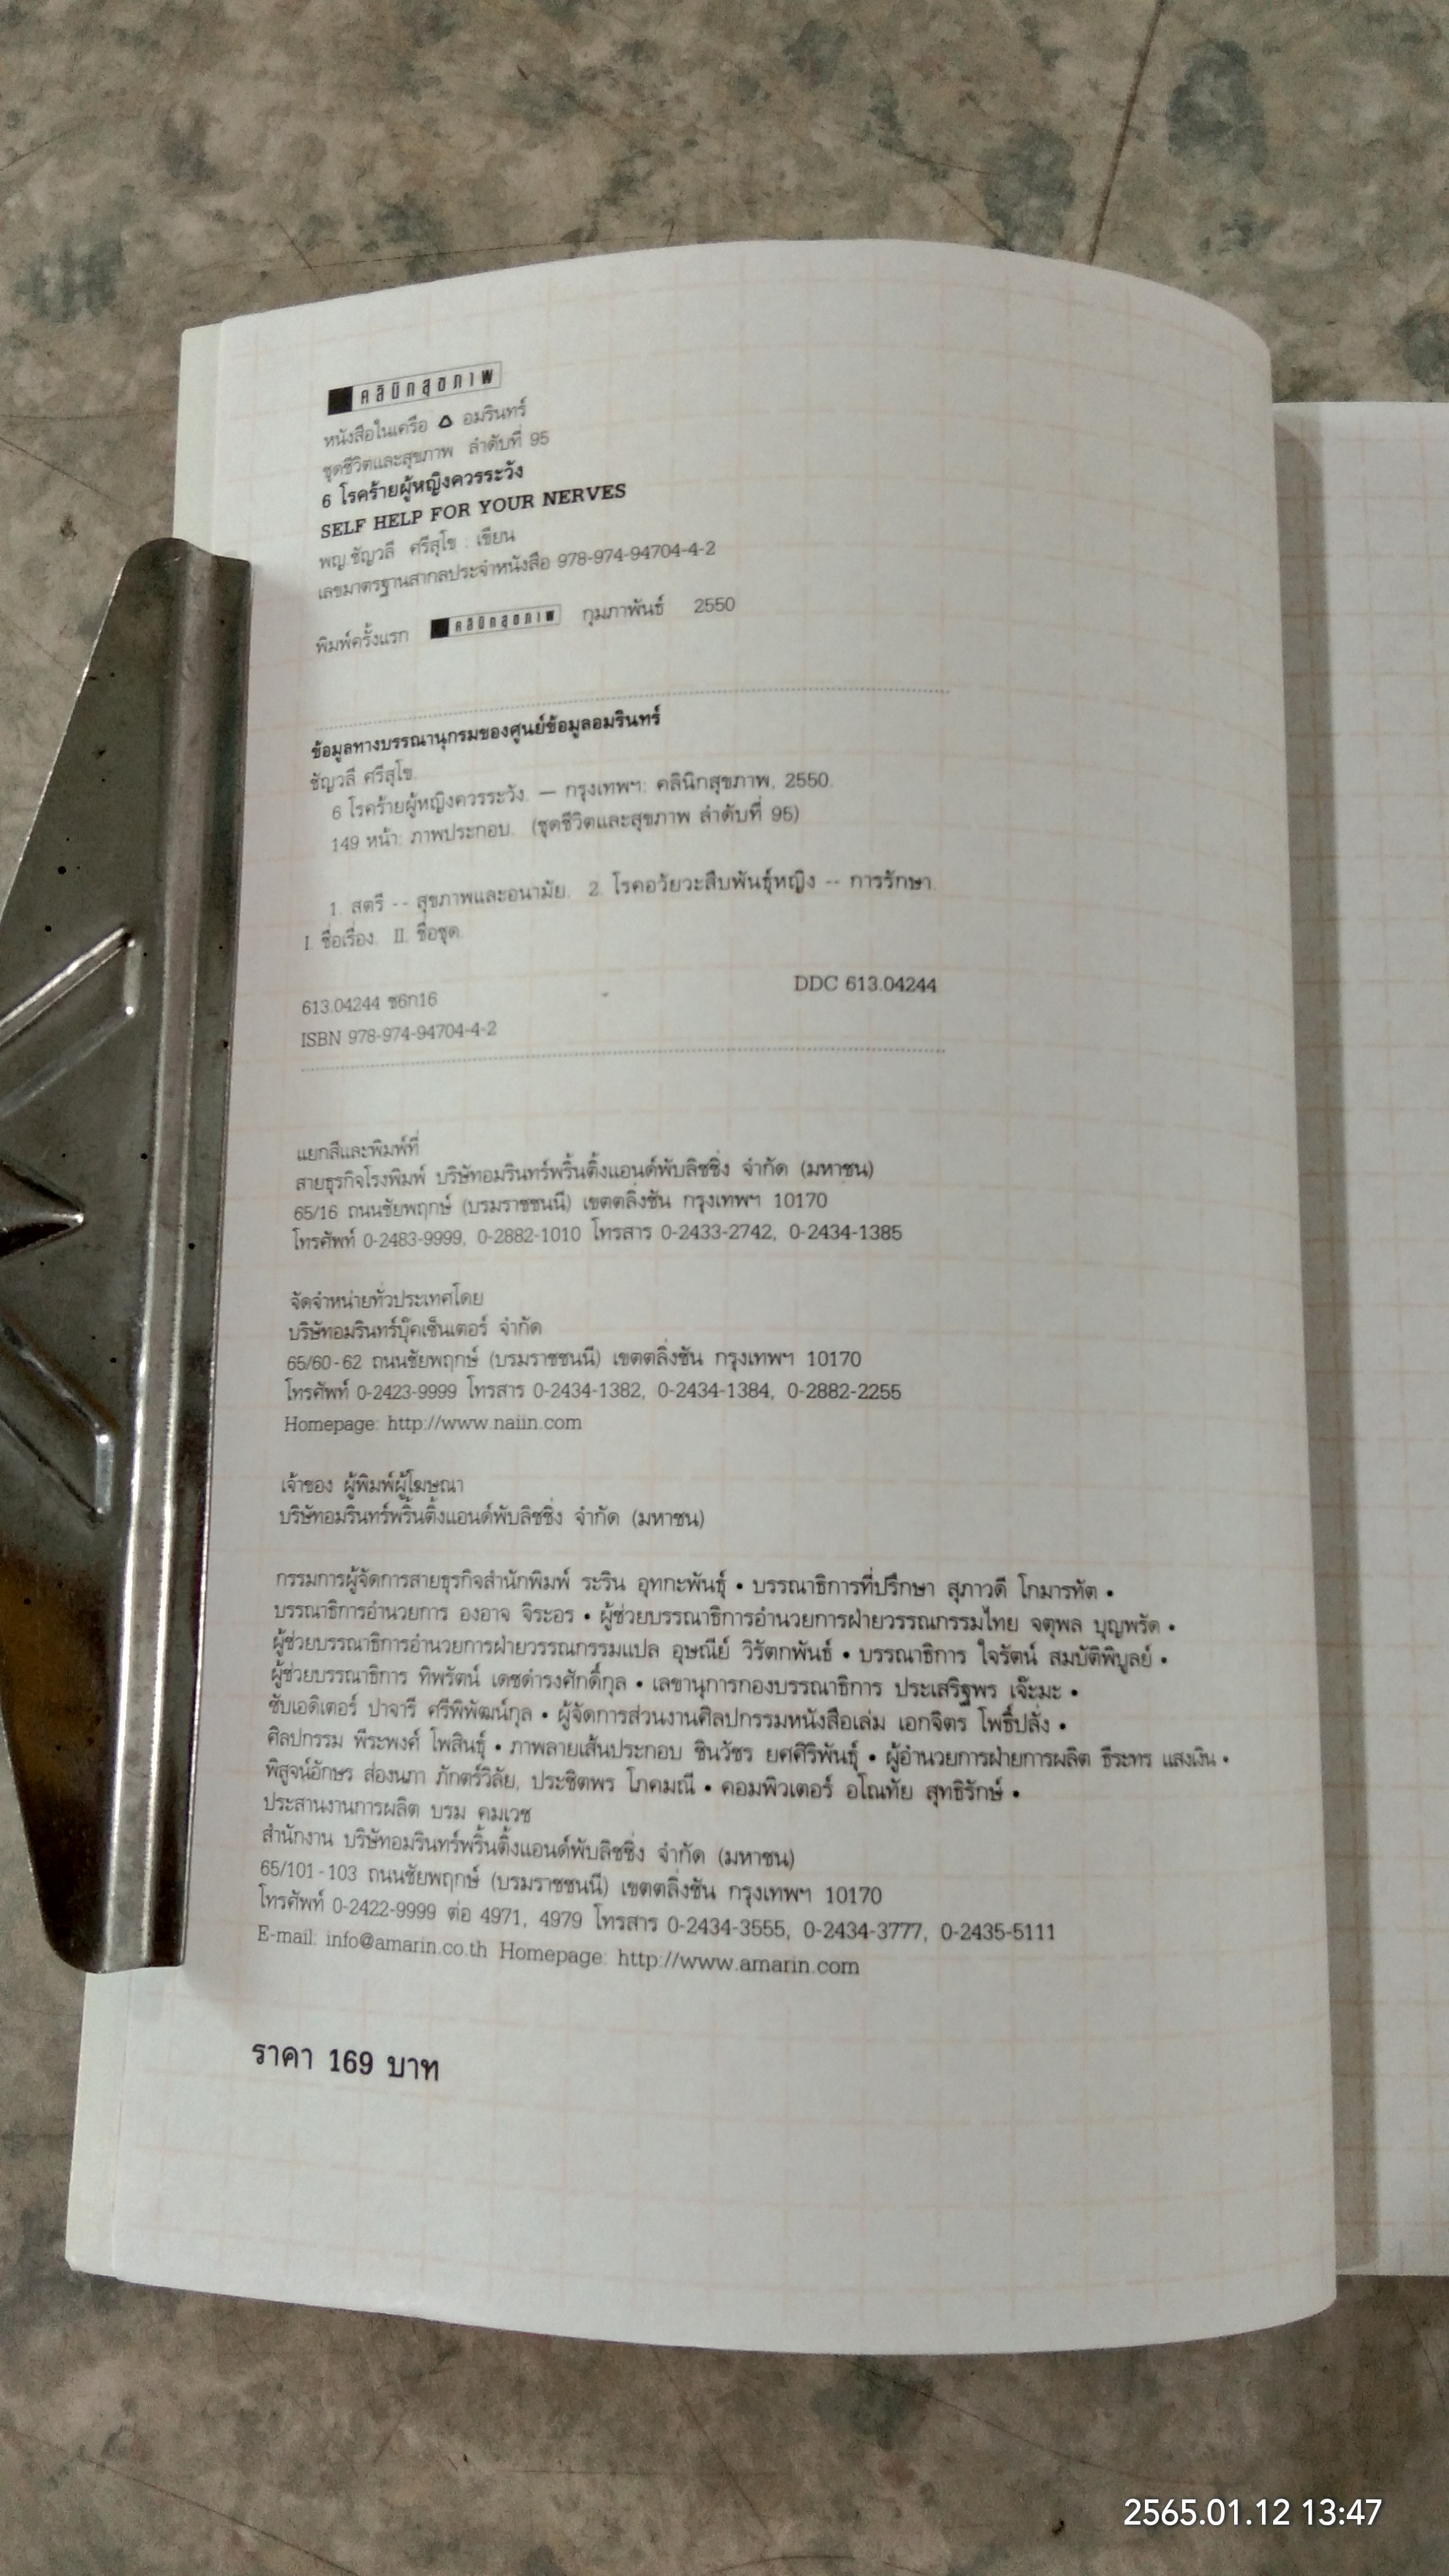 คลินิกสุขภาพ
หนังสือในเครือ อมรินทร์
ชุดชีวิตและสุขภาพ ลำดับที่ 95
6 โรคร้ายผู้หญิงควรระวัง
SELF HELP FOR YOUR NERVES
พญ.ชัญวลี ศรีสุโข : เขียน
เลขมาตรฐานสากลประจำหนังสือ 978-974-94704-4-2
พิมพ์ครั้งแรก คลินิกสุขภาพ กุมภาพันธ์ 2550
ข้อมูลทางบรรณานุกรมของศูนย์ข้อมูลอมรินทร์
ชัญวลี ศรีสุโข.
6 โรคร้ายผู้หญิงควรระวัง. — กรุงเทพฯ: คลินิกสุขภาพ, 2550.
149 หน้า: ภาพประกอบ. (ชุดชีวิตและสุขภาพ ลำดับที่ 95)
1. สตรี -- สุขภาพและอนามัย. 2. โรคอวัยวะสืบพันธุ์หญิง -- การรักษา.
I. ชื่อเรื่อง. II. ชื่อชุด.
DDC 613.04244
613.04244 ช6ก16
ISBN 978-974-94704-4-2
แยกสีและพิมพ์ที่
สายธุรกิจโรงพิมพ์ บริษัทอมรินทร์พริ้นติ้งแอนด์พับลิชชิ่ง จำกัด (มหาชน)
65/16 ถนนชัยพฤกษ์ (บรมราชชนนี) เขตตลิ่งชัน กรุงเทพฯ 10170
โทรศัพท์ 0-2483-9999, 0-2882-1010 โทรสาร 0-2433-2742, 0-2434-1385
จัดจำหน่ายทั่วประเทศโดย
บริษัทอมรินทร์บุ๊คเซ็นเตอร์ จำกัด
65/60-62 ถนนชัยพฤกษ์ (บรมราชชนนี) เขตตลิ่งชัน กรุงเทพฯ 10170
โทรศัพท์ 0-2423-9999 โทรสาร 0-2434-1382, 0-2434-1384, 0-2882-2255
Homepage: http://www.naiin.com
เจ้าของ ผู้พิมพ์ผู้โฆษณา
บริษัทอมรินทร์พริ้นติ้งแอนด์พับลิชชิ่ง จำกัด (มหาชน)
กรรมการผู้จัดการสายธุรกิจสำนักพิมพ์ ระริน อุทกะพันธุ์ • บรรณาธิการที่ปรึกษา สุภาวดี โกมารทัต •
บรรณาธิการอำนวยการ องอาจ จิระอร • ผู้ช่วยบรรณาธิการอำนวยการฝ่ายวรรณกรรมไทย จตุพล บุญพรัด •
ผู้ช่วยบรรณาธิการอำนวยการฝ่ายวรรณกรรมแปล อุษณีย์ วิรัตกพันธ์ • บรรณาธิการ ใจรัตน์ สมบัติพิบูลย์ •
ผู้ช่วยบรรณาธิการ ทิพรัตน์ เดชดำรงศักดิ์กุล • เลขานุการกองบรรณาธิการ ประเสริฐพร เจ๊ะมะ •
ซับเอดิเตอร์ ปาจารี ศรีพิพัฒน์กุล • ผู้จัดการส่วนงานศิลปกรรมหนังสือเล่ม เอกจิตร โพธิ์ปลั่ง •
ศิลปกรรม พีระพงศ์ โพสินธุ์ • ภาพลายเส้นประกอบ ชินวัชร ยศศิริพันธุ์ • ผู้อำนวยการฝ่ายการผลิต ธีระทร แสงเงิน •
พิสูจน์อักษร ส่องนภา ภักตร์วิลัย, ประชิตพร โภคมณี • คอมพิวเตอร์ อโณทัย สุทธิรักษ์ •
ประสานงานการผลิต บรม คมเวช
สำนักงาน บริษัทอมรินทร์พริ้นติ้งแอนด์พับลิชชิ่ง จำกัด (มหาชน)
65/101-103 ถนนชัยพฤกษ์ (บรมราชชนนี) เขตตลิ่งชัน กรุงเทพฯ 10170
โทรศัพท์ 0-2422-9999 ต่อ 4971, 4979 โทรสาร 0-2434-3555, 0-2434-3777, 0-2435-5111
E-mail: info@amarin.co.th Homepage: http://www.amarin.com
ราคา 169 บาท
2565.01.12 13:47